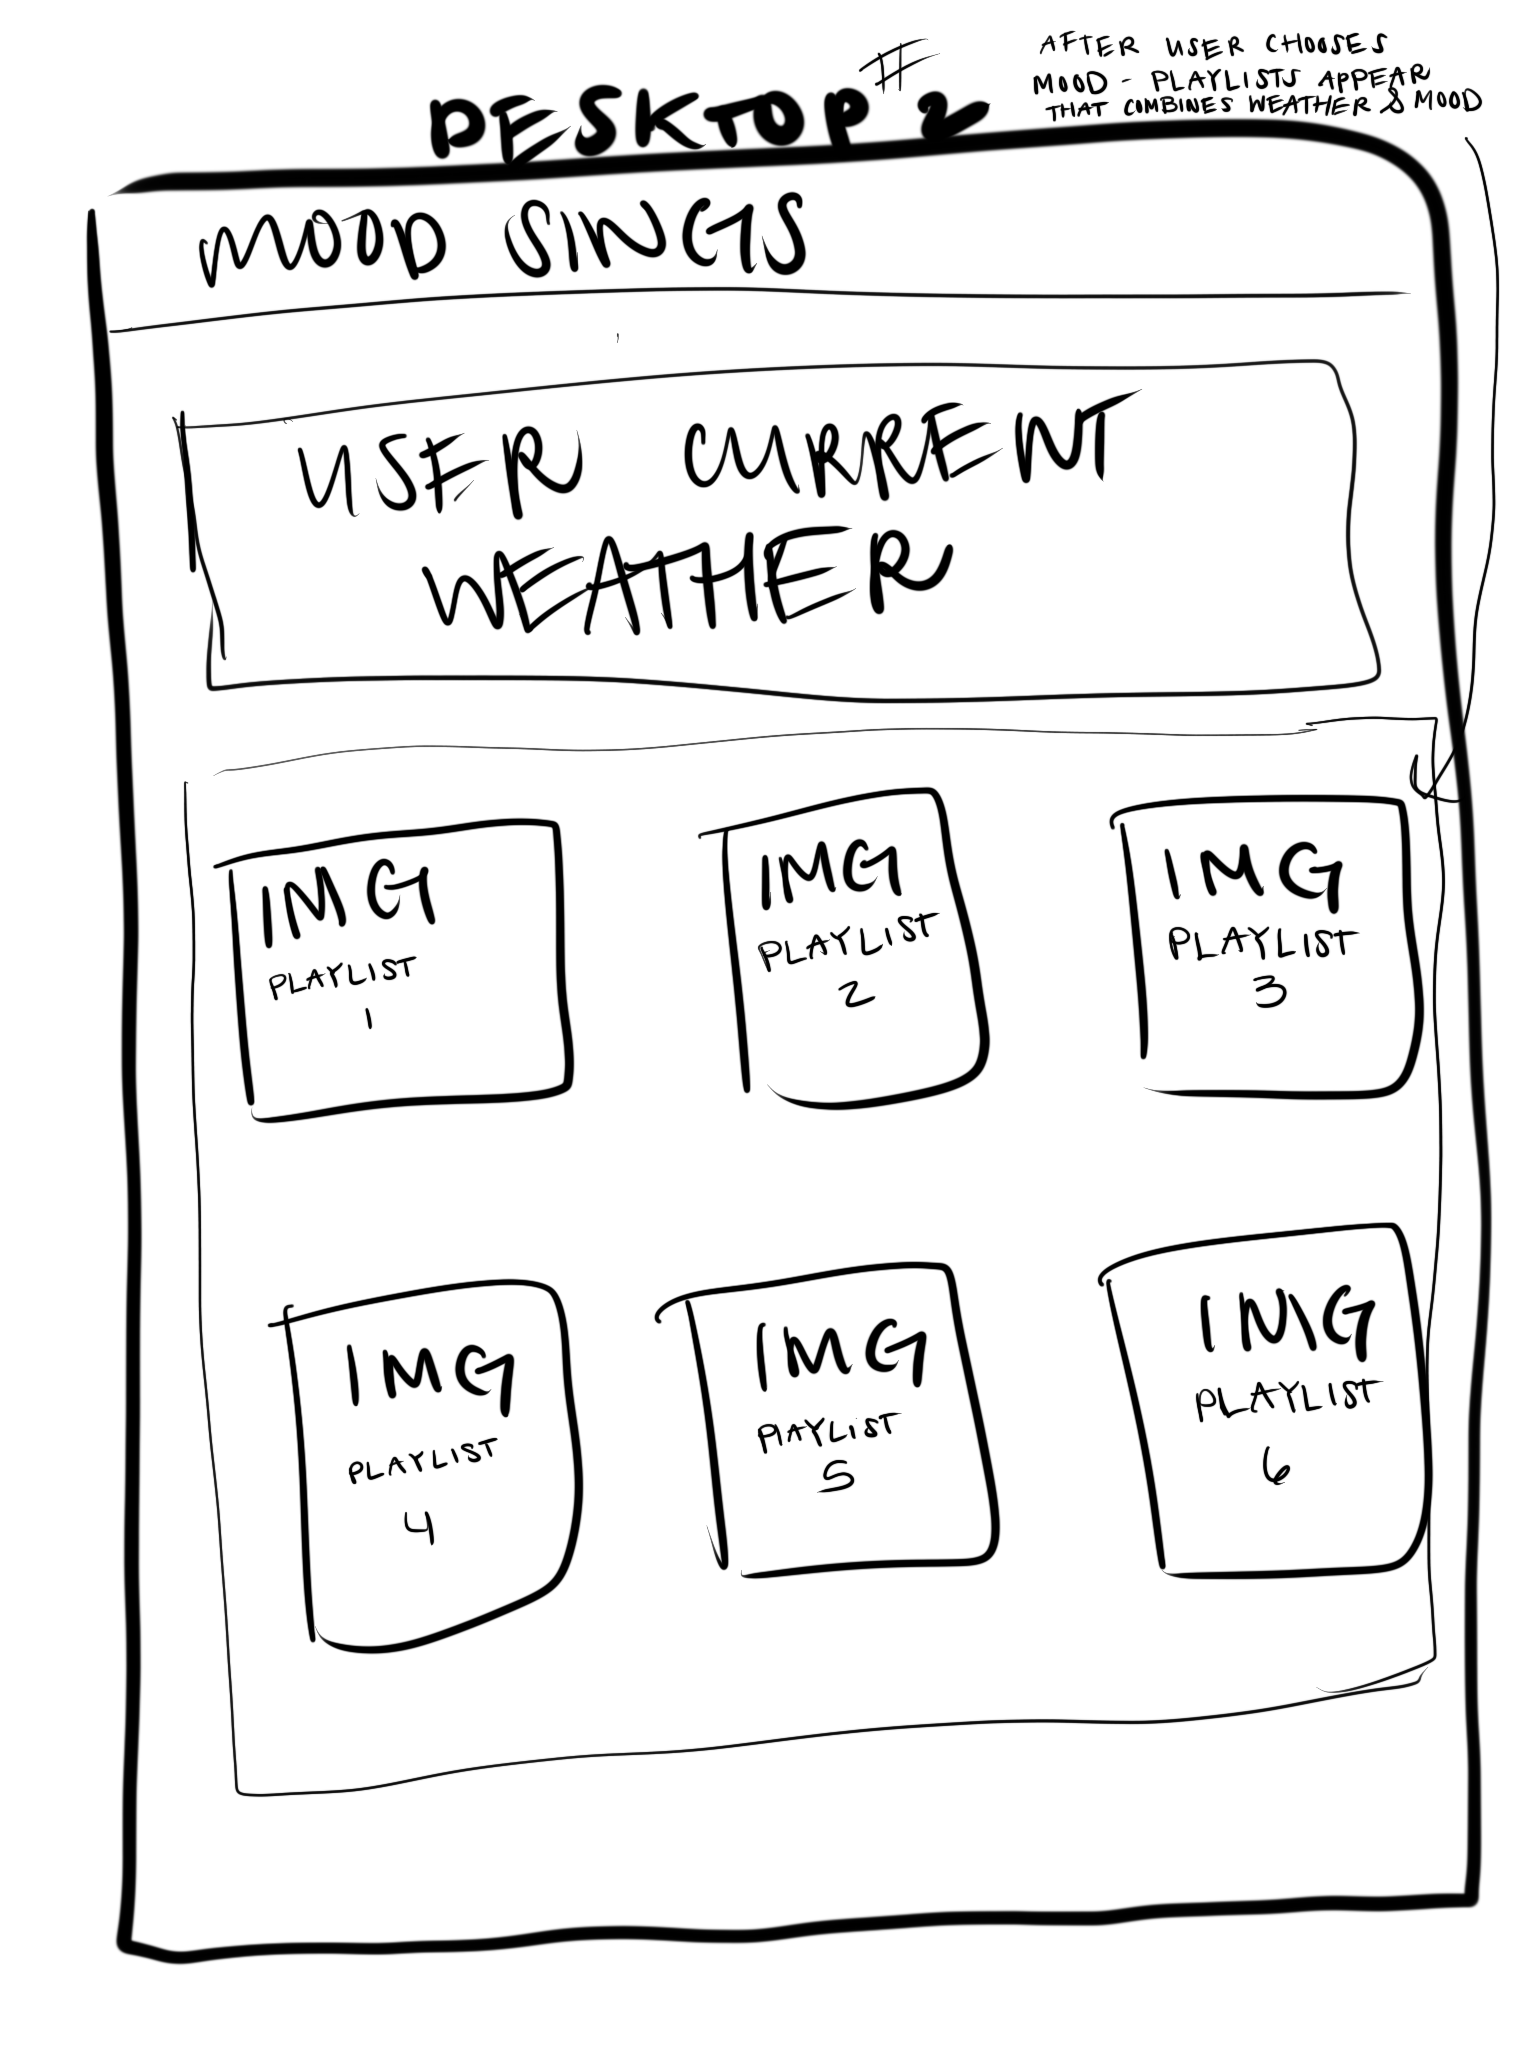 DESKTOP # 2
AFTER USER CHOOSES
MOOD - PLAYLISTS APPEAR
THAT COMBINES WEATHER & MOOD
MOOD SINGS
USER CURRENT
WEATHER
IMG
PLAYLIST
1
IMG
PLAYLIST
2
IMG
PLAYLIST
3
IMG
PLAYLIST
4
IMG
PLAYLIST
5
IMG
PLAYLIST
6